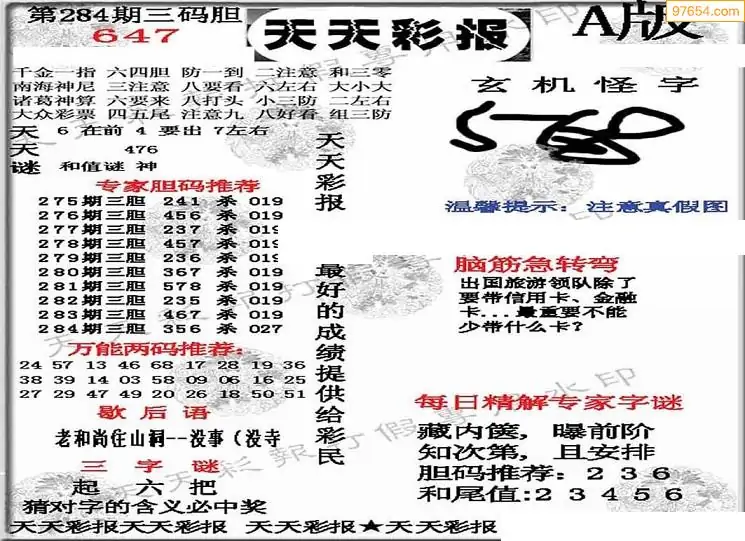 第284期三码胆
647
天天彩报
A版
97654.com
千金一指 六四胆 防一到 二注意 和三零
南海神尼 三注意 八要看 六左右 大小大
诸葛神算 六要来 八打头 小三防 二左右
大众彩票 四五尾 注意九 八好看 组三防
天 6 在前 4 要出 7左右
天 476
谜 和值谜 神
专家胆码推荐
275期三胆 241 杀 019
276期三胆 456 杀 019
277期三胆 237 杀 019
278期三胆 457 杀 019
279期三胆 236 杀 019
280期三胆 367 杀 019
281期三胆 578 杀 019
282期三胆 235 杀 019
283期三胆 467 杀 019
284期三胆 356 杀 027
万能两码推荐:
24 57 13 46 68 17 28 19 36
38 39 14 03 58 09 06 16 25
27 29 47 49 20 26 18 50 51
歇后语
老和尚住山洞--没事(没寺
三字谜
起六把
猜对字的含义必中奖
天天彩报
最好的成绩提供给彩民
玄机怪字
温馨提示: 注意真假图
脑筋急转弯
出国旅游领队除了
要带信用卡、金融
卡...最重要不能
少带什么卡?
每日精解专家字谜
藏内箧, 曝前阶
知次第, 且安排
胆码推荐: 2 3 6
和尾值:2 3 4 5 6
天天彩报天天彩报 天天彩报★天天彩报